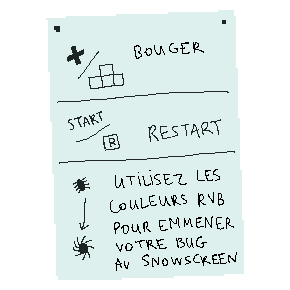 BOUGER
START
R
RESTART
UTILISEZ LES
COULEURS RVB
POUR EMMENER
VOTRE BUG
AU SNOWSCREEN